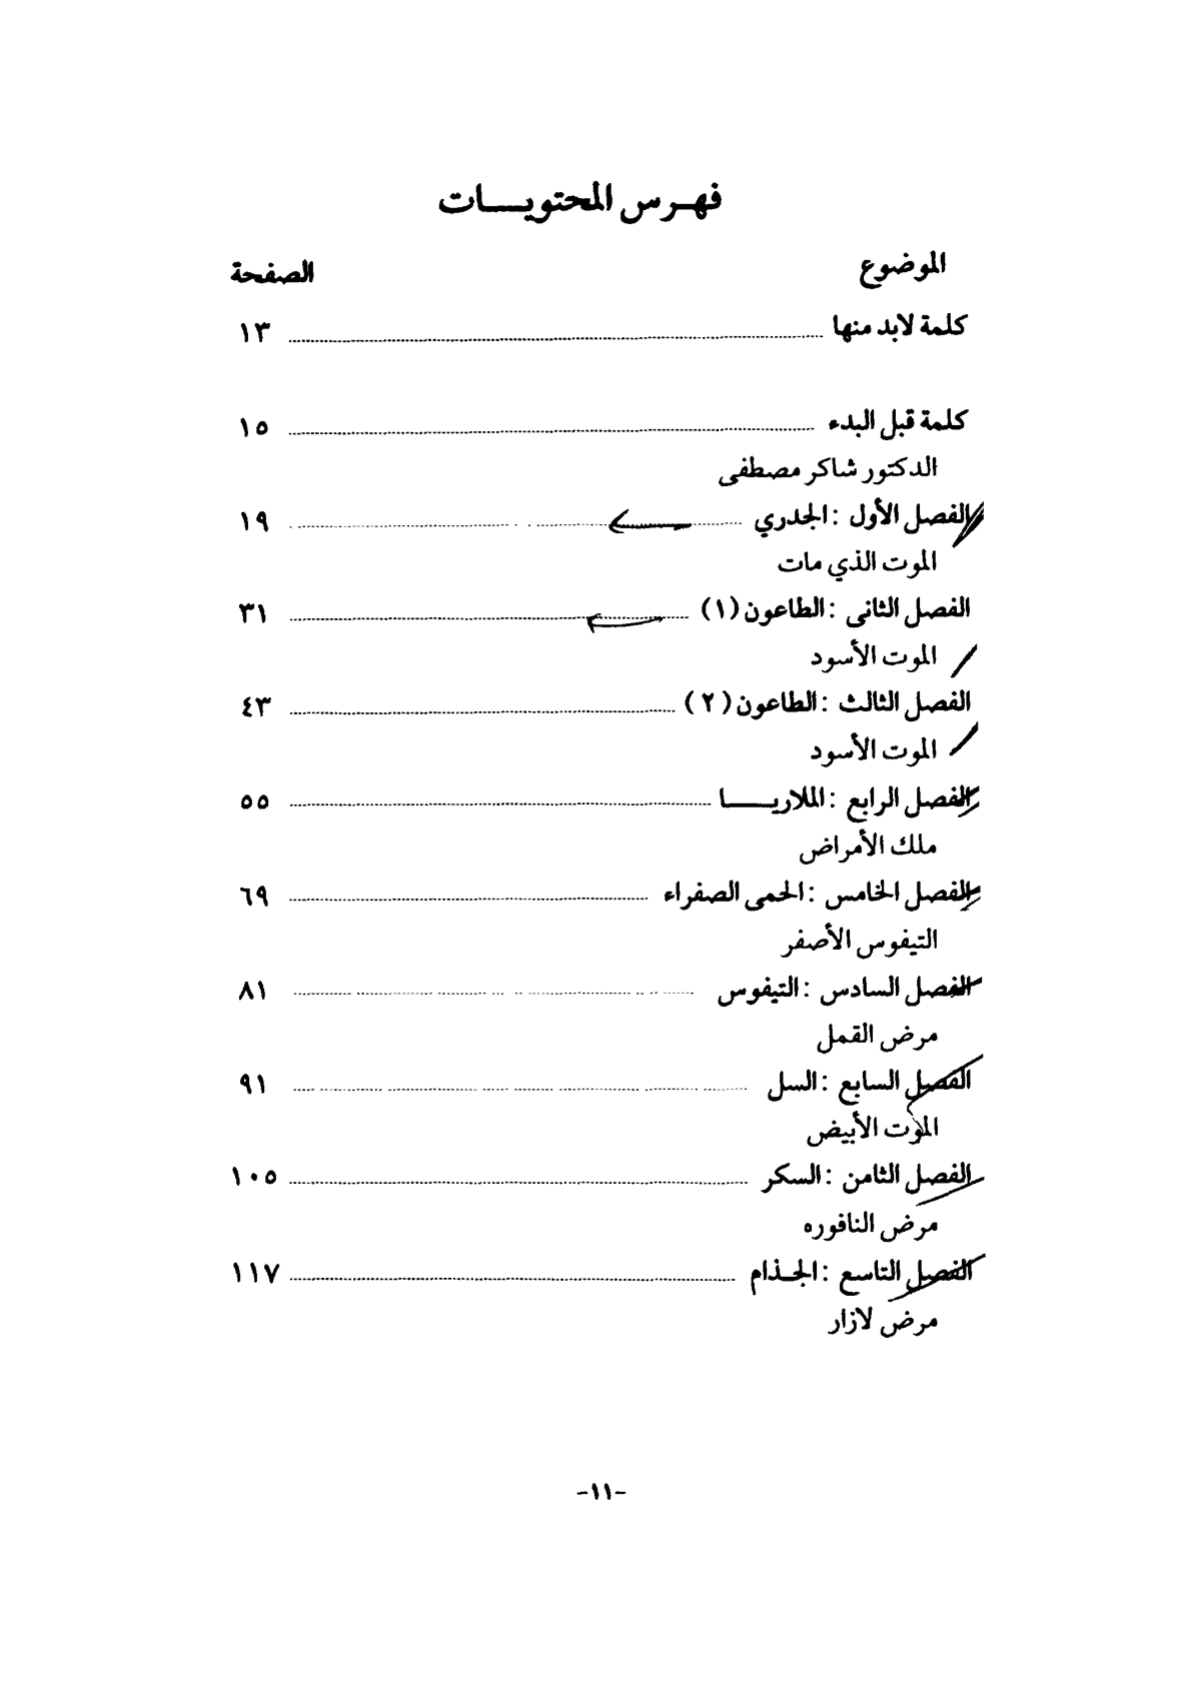 فهرس المحتويات
الموضوع الصفحة
كلمة لابد منها ١٣
كلمة قبل البدء ١٥
الدكتور شاكر مصطفى
الفصل الأول : الجدري ١٩
الموت الذي مات
الفصل الثانى : الطاعون (١) ٣١
الموت الأسود
الفصل الثالث : الطاعون (٢) ٤٣
الموت الأسود
الفصل الرابع : الملاريا ٥٥
ملك الأمراض
الفصل الخامس : الحمى الصفراء ٦٩
التيفوس الأصفر
الفصل السادس : التيفوس ٨١
مرض القمل
الفصل السابع : السل ٩١
الموت الأبيض
الفصل الثامن : السكر ١٠٥
مرض النافوره
الفصل التاسع : الجذام ١١٧
مرض لازار
-١١-